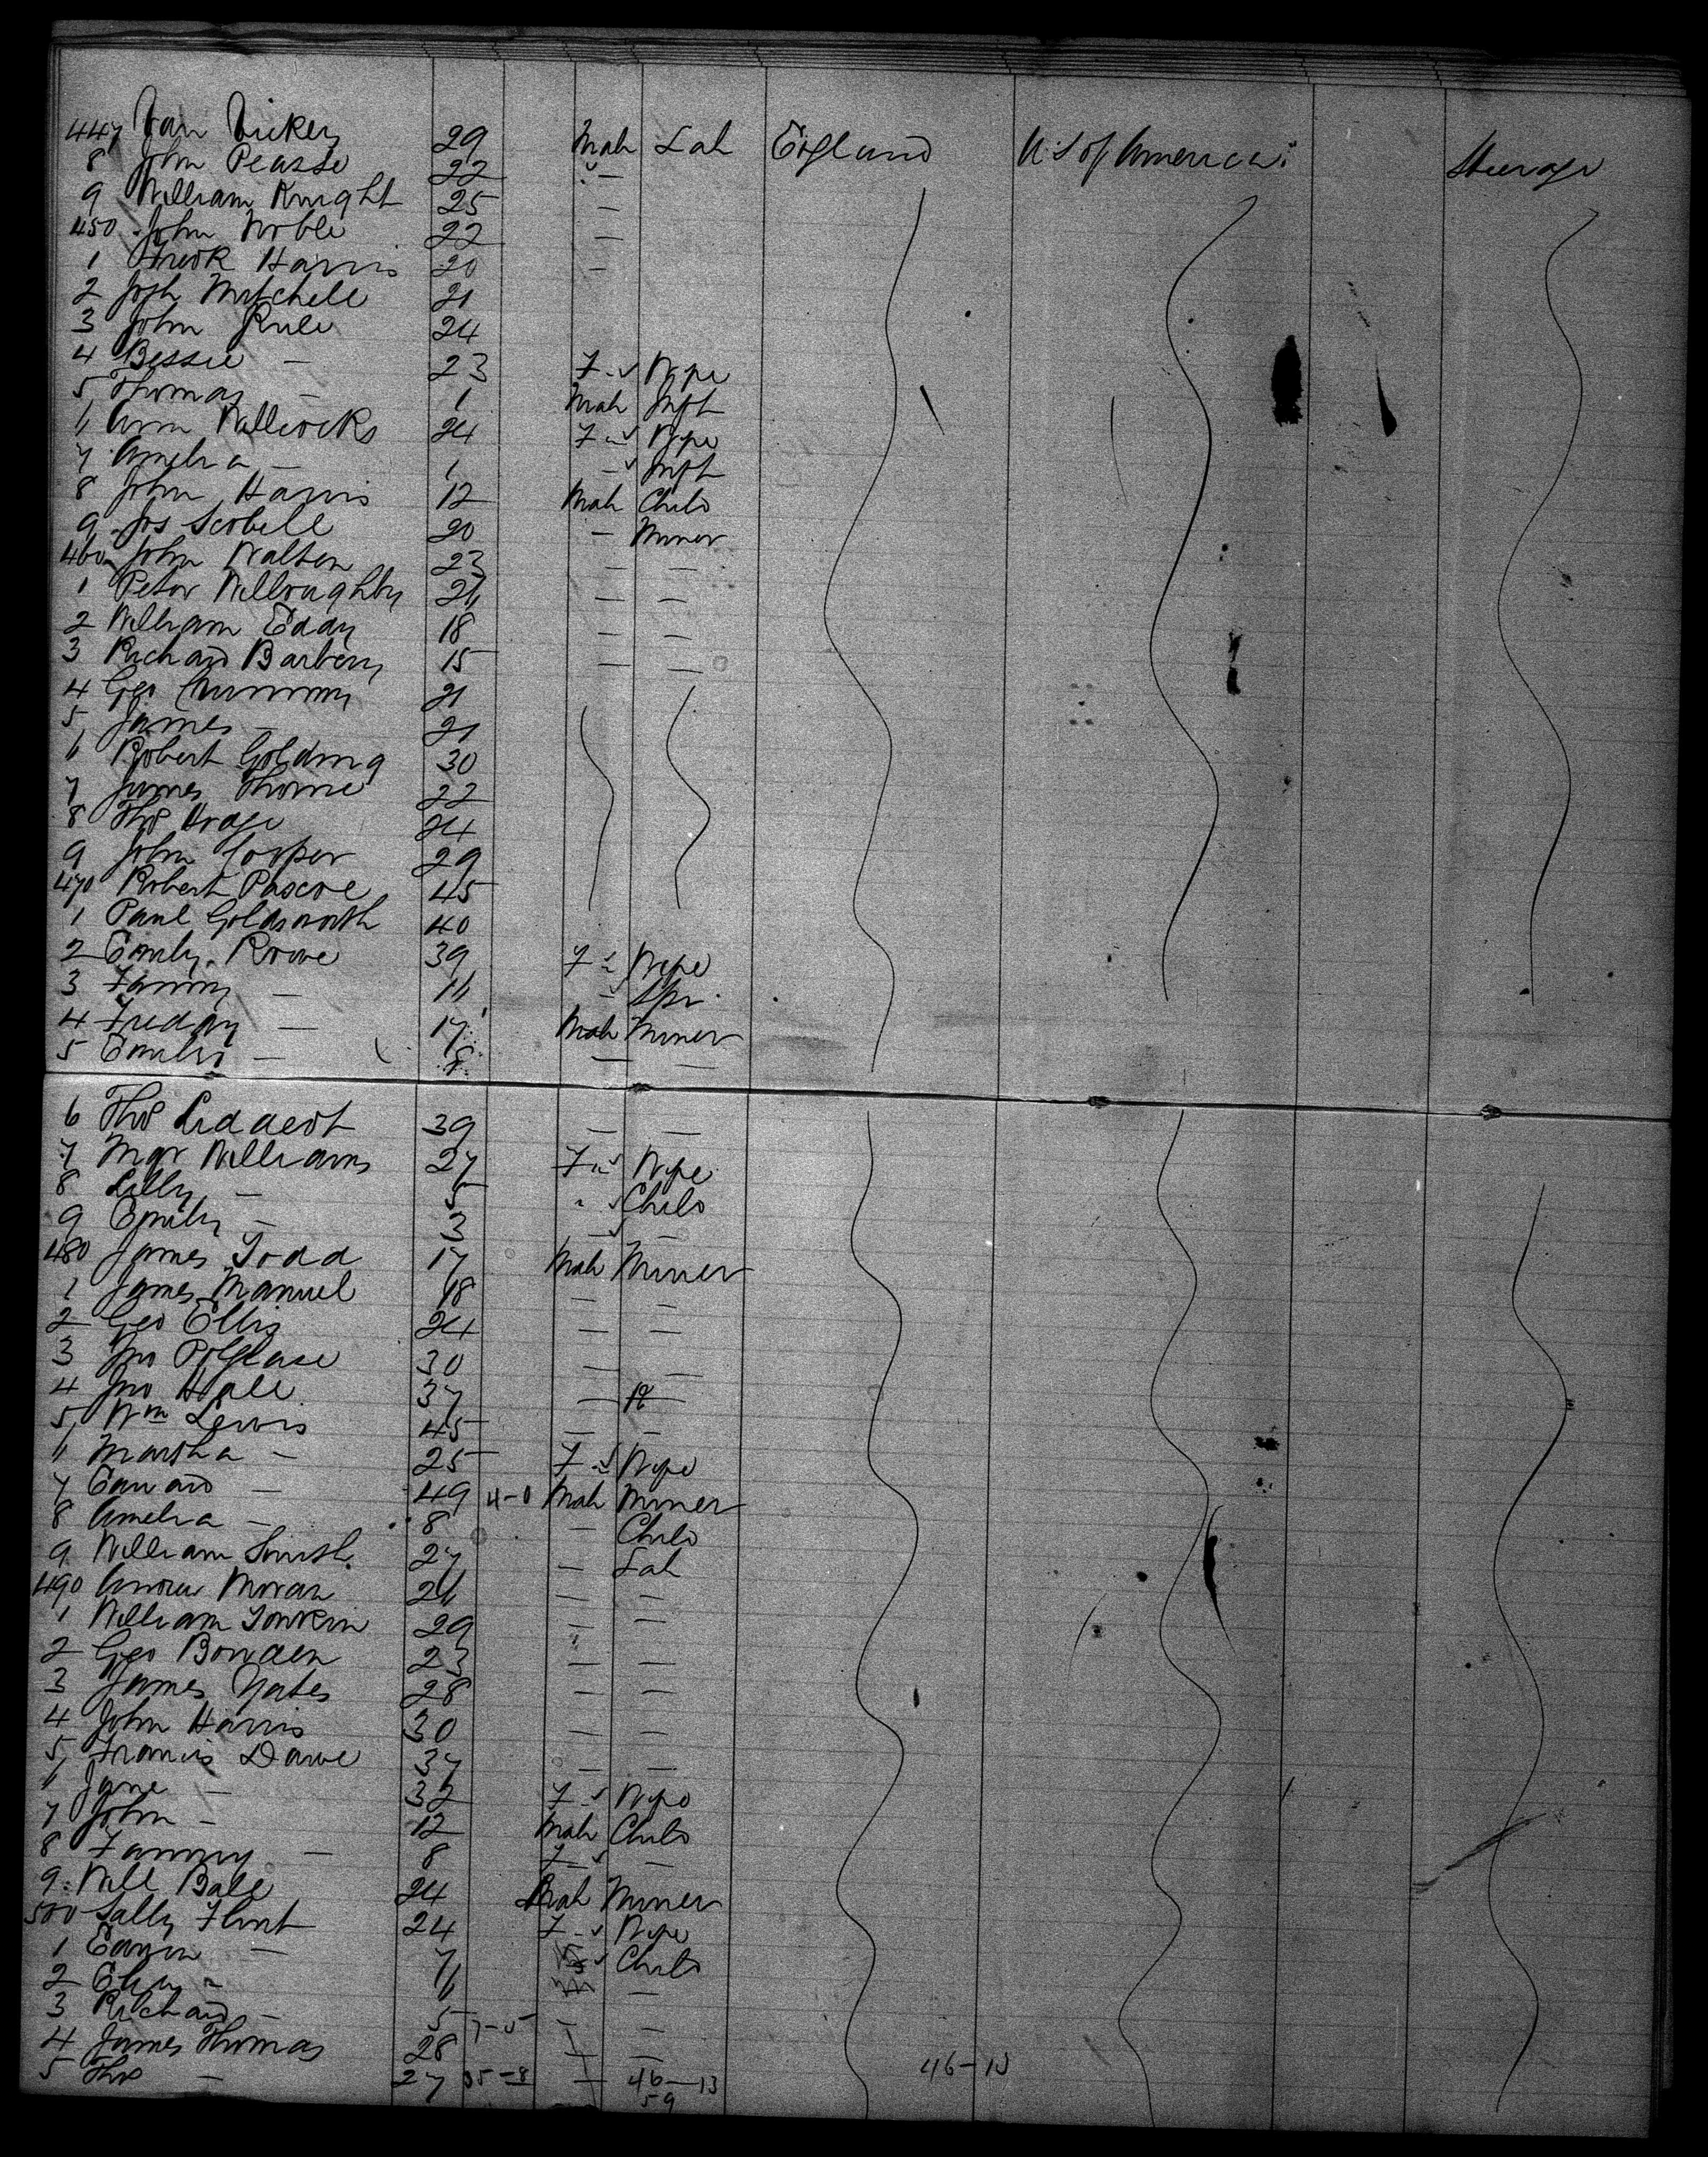 447 Van Vickery 29 Male Lab England U.S of America: Steerage
8 John Pearse 22 " —
9 William Knight 25 —
450 John Noble 22 —
1 Fredk Harris 20 —
2 Josh Mitchell 21
3 John Rule 24
4 Bessie — 23 F Wife
5 Thomas — 1 Male Inft
6 Ann Willcocks 24 F Wife
7 Amelia — 1 — Inft
8 John Harris 12 Male Child
9 Jos Scobell 20 — Miner
460 John Walten 23 — —
1 Peter Willoughby 26 — —
2 William Eddy 18 — —
3 Richard Barbery 15 — —
4 Geo 21
5 James — 21
6 Robert Golding 30
7 James Thorne 22
8 Thos 24
9 John Cooper 29
470 Robert Pascoe 45
1 Paul Goldsworth 40
2 Emily Rowe 39 F Wife
3 Fanny — 16 — Spr
4 Freddy — 17 Male Miner
5 — — —
6 Thos 39 — —
7 Mgr Williams 27 F Wife
8 Lilly — 5 " Child
9 Emily — 3 — —
480 James Todd 17 Male Miner
1 James Manuel 18 — —
2 Geo Ellis 24 — —
3 Jno Polglase 30 — —
4 Jno Hall 37 — —
5 Wm Lewis 45 — —
6 Martha — 25 F Wife
7 Edward — 49 4-0 Male Miner
8 Amelia — 8 — Child
9 William Smith 27 — Lab
490 Andrew Moran 26 — —
1 William Tonkin 29 — —
2 Geo Bowden 23 — —
3 James Yates 28 — —
4 John Harris 30 — —
5 Francis Dawe 37 — —
6 Jane — 32 F Wife
7 John — 12 Male Child
8 Fanny — 8 F —
9 Will Ball 24 Male Miner
500 Sally Flint 24 F Wife
1 Edwin — 7 Child
2 — 6 —
3 Richard — 5 7-5 — —
4 James Thomas 28 — —
5 Thos — 27 35-8 — 46—13 46-13
59